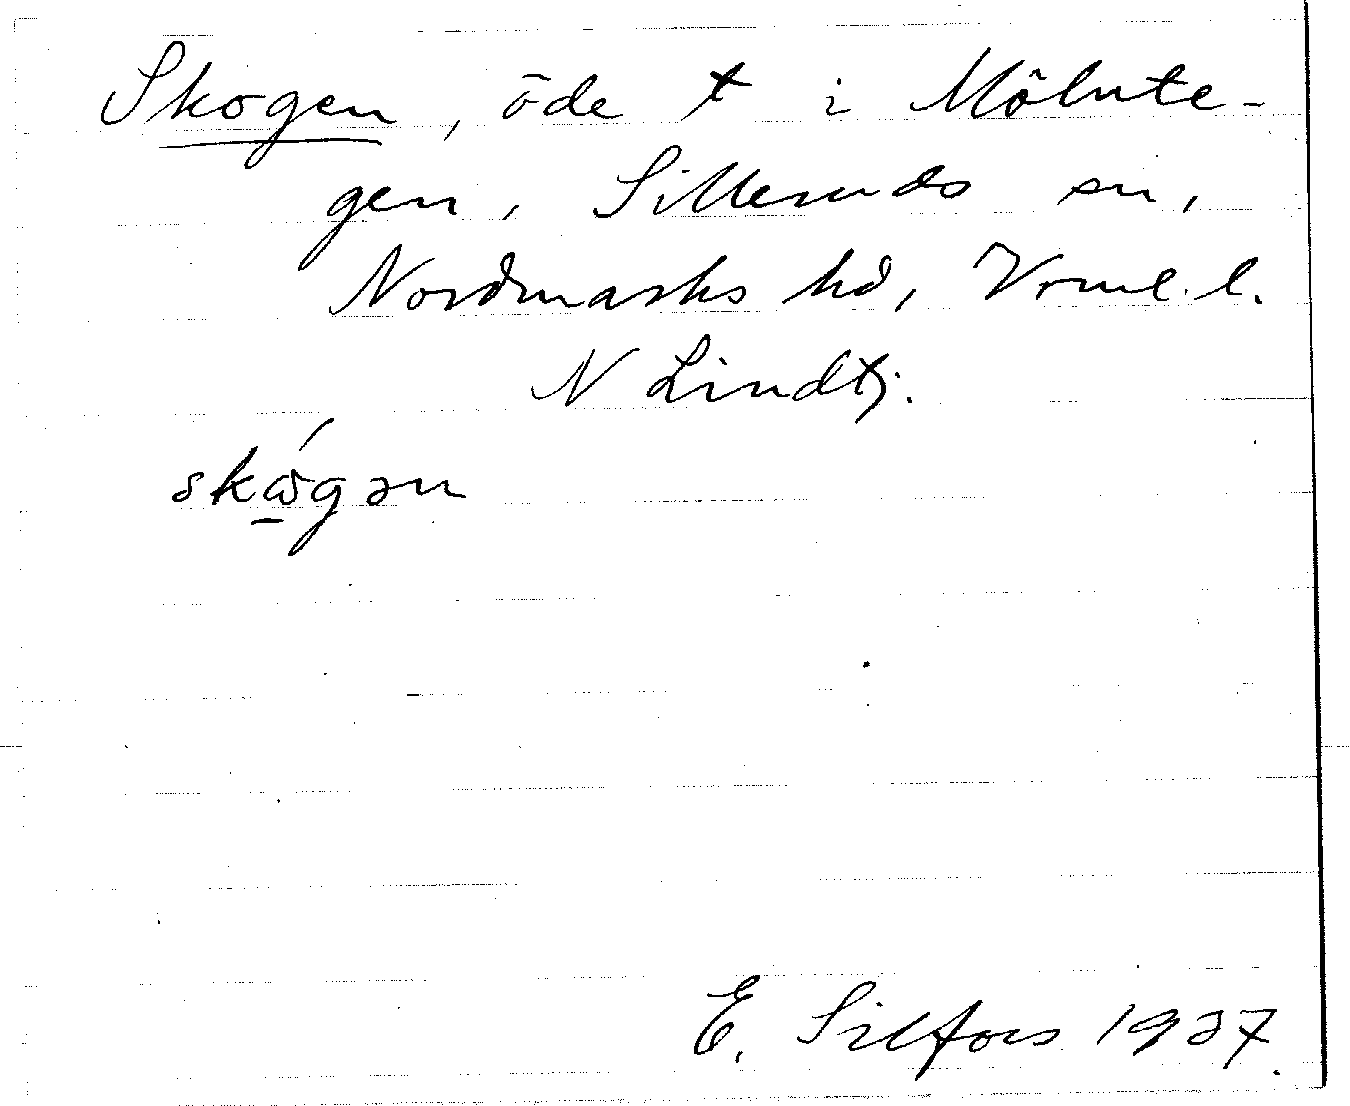 Skogen, öde t i Mölnte-
gen, Silleruds sn,
Nordmarks hd, Vrml. l.
N Lindtj.
E. Silfors 1937.